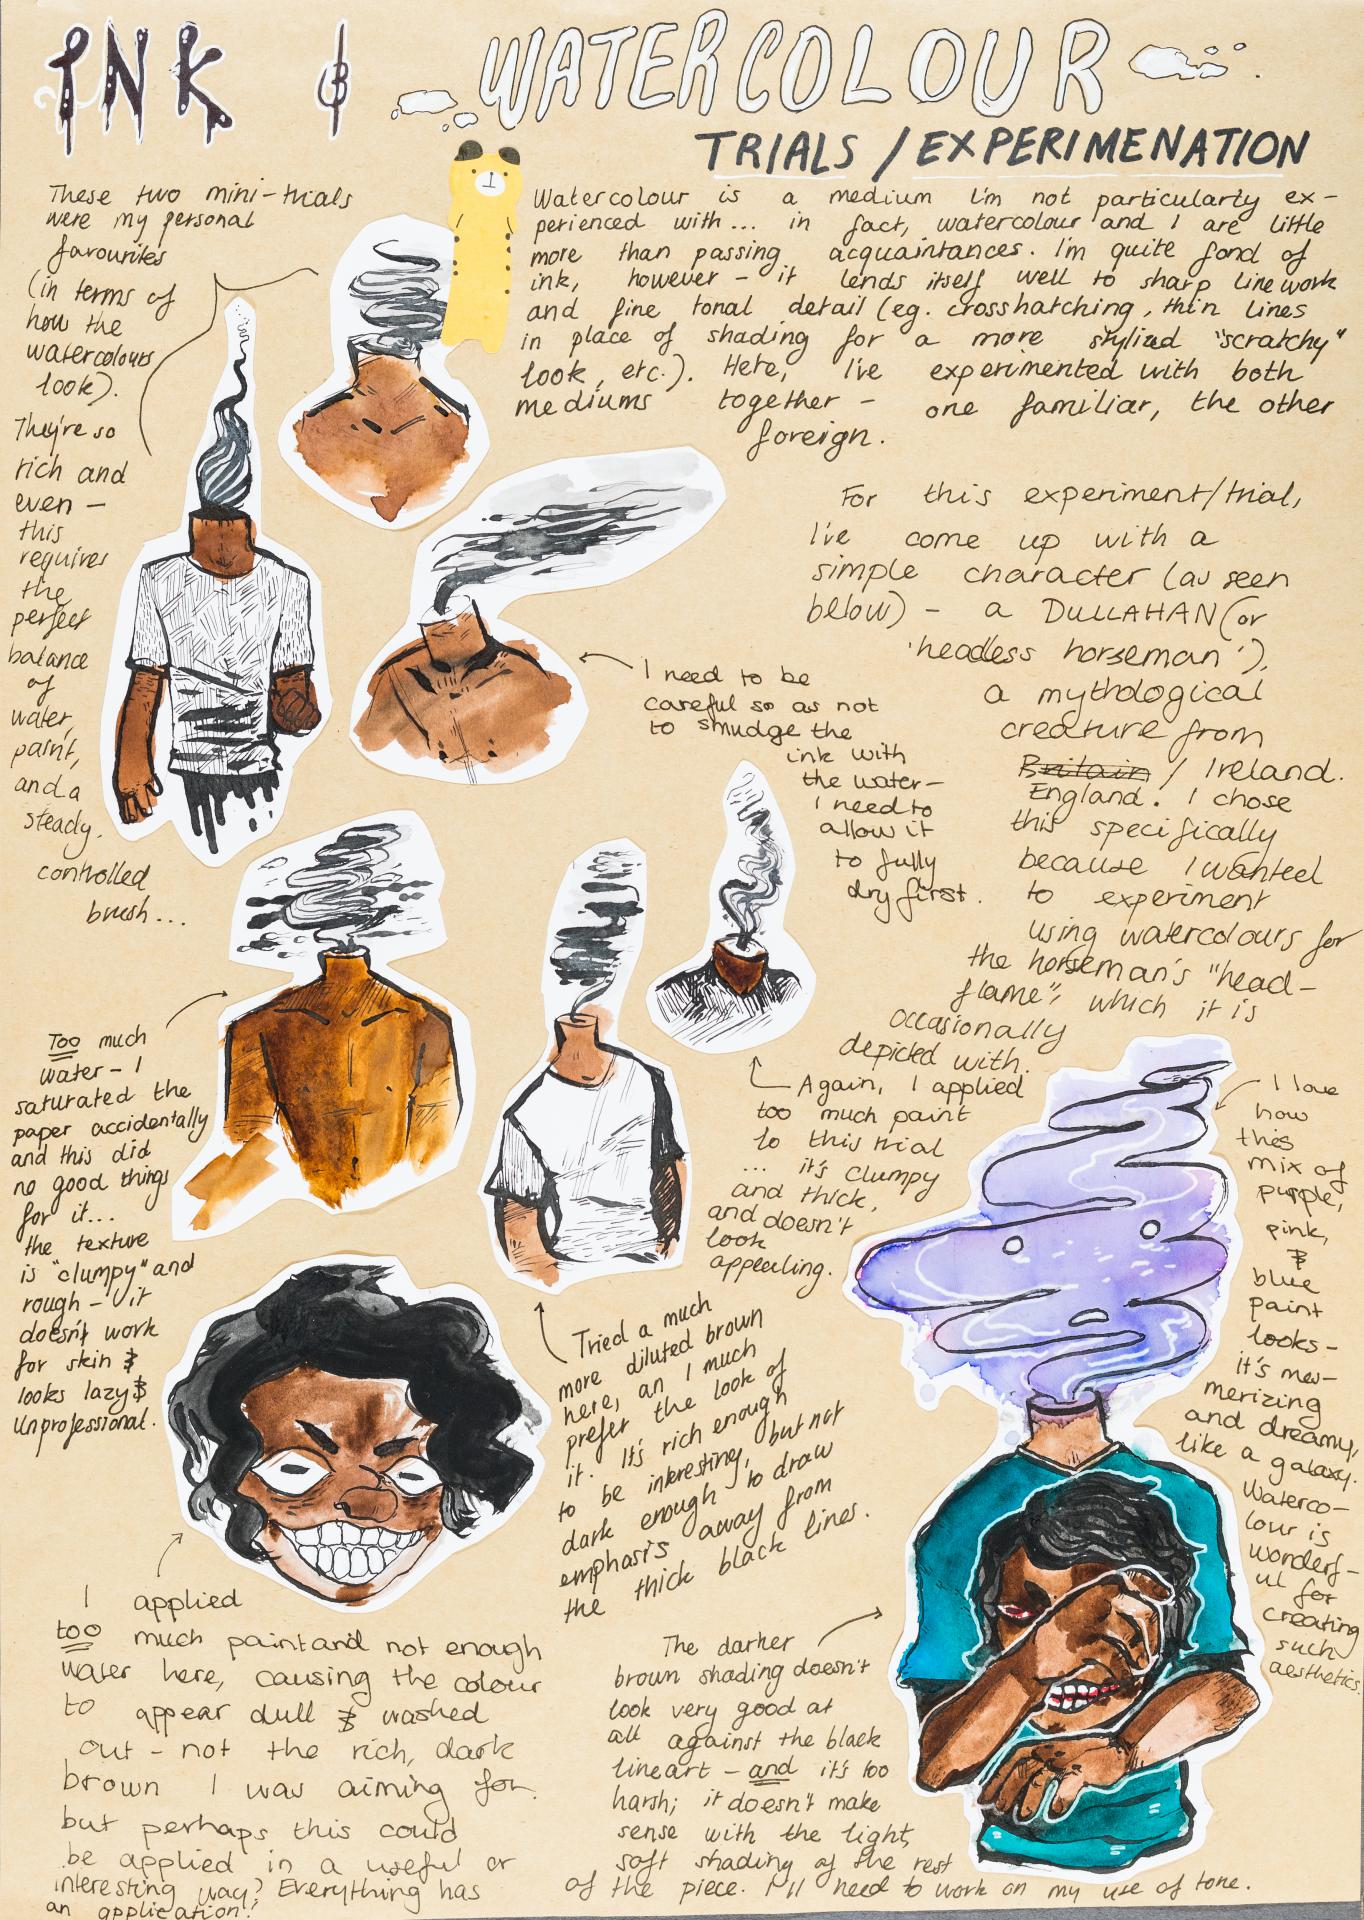 INK &
WATERCOLOUR
TRIALS / EXPERIMENATION
These two mini-trials
were my personal
favourites
(in terms of
how the
watercolours
look).
They're so
rich and
even -
this
requires
the
perfect
balance
of
water,
paint,
and a
steady,
controlled
brush...
Watercolour is a medium I'm not particularly ex-
perienced with... in fact, watercolour and I are little
more than passing acquaintances. I'm quite fond of
ink, however - it lends itself well to sharp linework
and fine tonal detail (eg. crosshatching, thin lines
in place of shading for a more stylized "scratchy"
look, etc.). Here, I've experimented with both
mediums together - one familiar, the other
foreign.
For this experiment/trial,
I've come up with a
simple character (as seen
below) - a DULLAHAN (or
'headless horseman'),
a mythological
creature from
Britain / Ireland.
England. I chose
this specifically
because I wanted
to experiment
using watercolours for
the horseman's "head-
flame", which it is
occasionally
depicted with.
I need to be
careful so as not
to smudge the
ink with
the water-
I need to
allow it
to fully
dry first.
Too much
water - I
saturated the
paper accidentally
and this did
no good things
for it...
the texture
is "clumpy" and
rough - it
doesn't work
for skin &
looks lazy &
unprofessional.
Again, I applied
too much paint
to this trial
... it's clumpy
and thick,
and doesn't
look
appealing.
I love
how
this
mix of
purple,
pink,
&
blue
paint
looks-
it's mes-
merizing
and dreamy,
like a galaxy.
Waterco-
lour is
wonderf-
ul for
creating
such
aesthetics.
Tried a much
more diluted brown
here, an I much
prefer the look of
it. It's rich enough
to be interesting, but not
dark enough to draw
emphasis away from
the thick black lines.
I applied
too much paint and not enough
water here, causing the colour
to appear dull & washed
out - not the rich, dark
brown I was aiming for.
but perhaps this could
be applied in a useful or
interesting way? Everything has
an application!
The darker
brown shading doesn't
look very good at
all against the black
lineart - and it's too
harsh; it doesn't make
sense with the light,
soft shading of the rest
of the piece. I'll need to work on my use of tone.